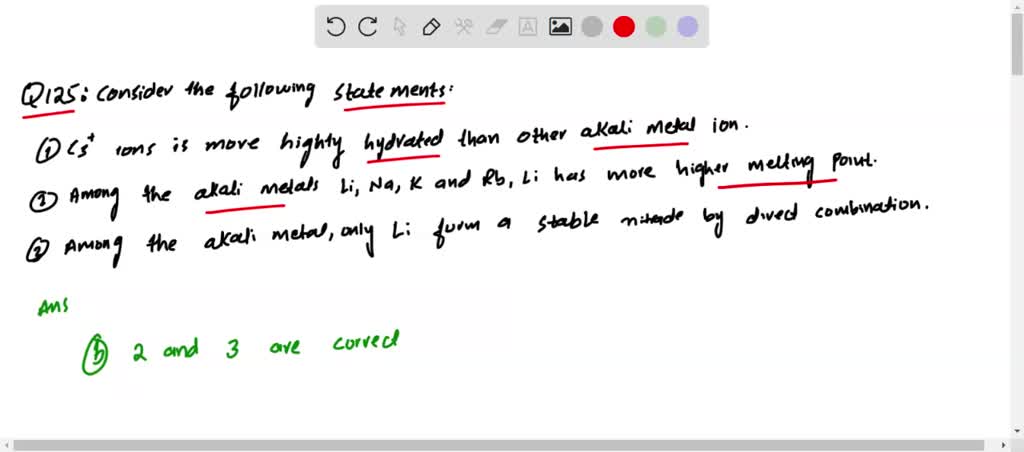 Q125: Consider the following statements:
① Cs⁺ ions is more highly hydrated than other akali metal ion.
② Among the akali metals Li, Na, K and Rb, Li has more higher melting point.
③ Among the akali metal, only Li form a stable nitride by direct combination.
Ans
ⓑ 2 and 3 are correct